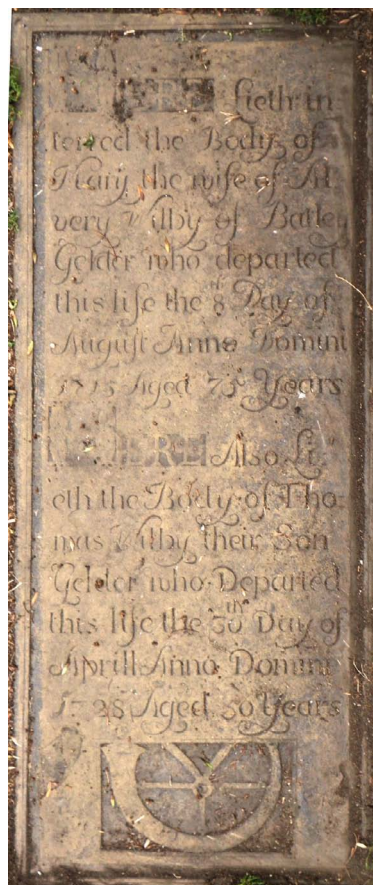 HERE Lieth in
terred the Body of
Mary the wife of Al
very Wilby of Batley
Gelder who departed
this life the 8th Day of
August Anno Domini
1715 Aged 75 Years
HERE Also Li
eth the Body of Tho
mas Wilby their Son
Gelder who Departed
this life the 30th Day of
Aprill Anno Domini
1728 Aged 50 Years